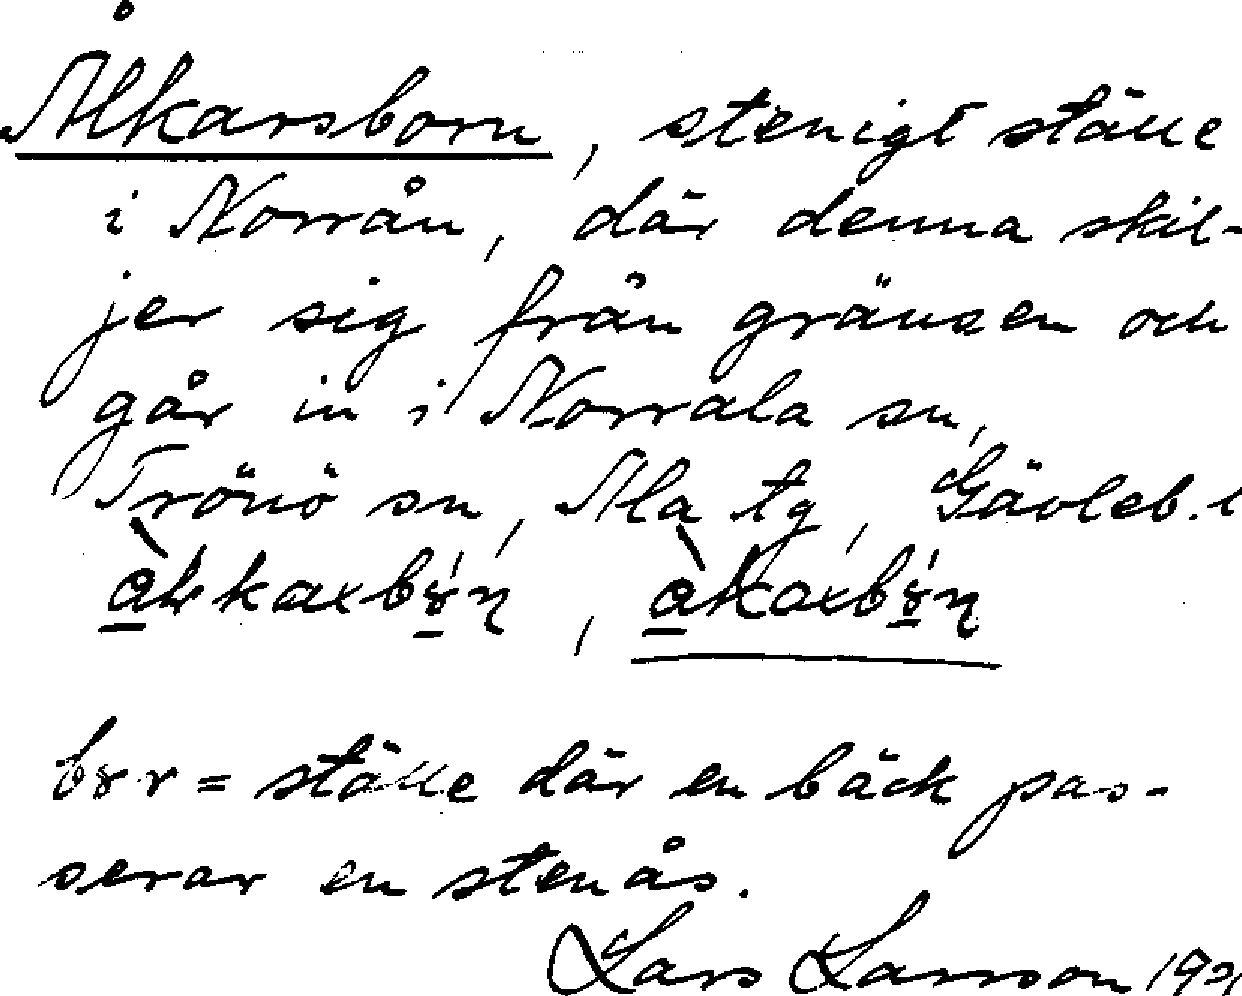 Ålkarsborn, stenigt ställe
i Norrån, där denna skil-
jer sig från gränsen och
går in i Norrala sn,
Trönö sn, Ala tg, Gävleb. l
bɤr = ställe där en bäck pas-
serar en stenås.
Lars Larsson